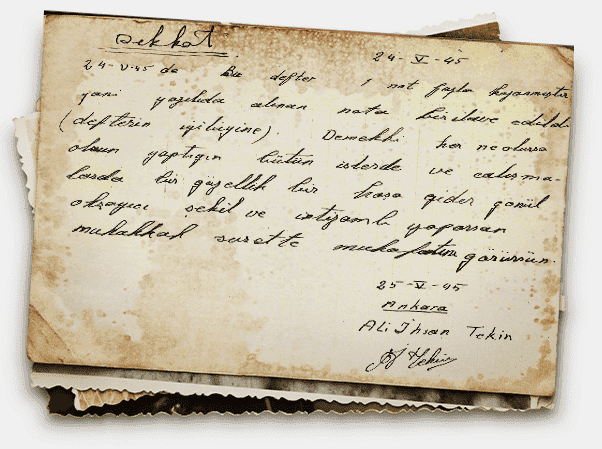 Dikkat
24-V-45
24-V-45 de Bu defter 1 not fazla kazanmıştır
yani yazılıda alınan nota bir ilave edildi
(defterin iyiliyine). Demekki her ne olursa
olsun yaptığın bütün işlerde ve çalışma-
larda bir güzellik bir hoşa gider gönül
okşayıcı şekil ve intizamla yaparsan
muhakkak surette mukafatını görürsün.
25-V-45
Ankara
Ali İhsan Tekin